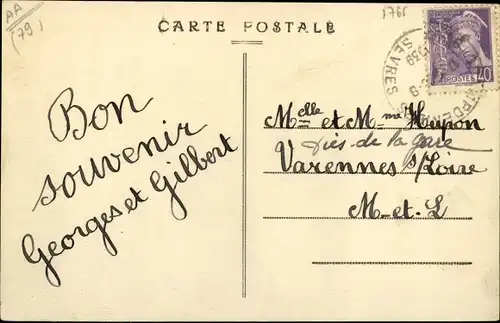 AA
(79)
CARTE POSTALE
1766
POSTES 40
1939
SÈVRES
Bon
souvenir
Georges et Gilbert
Melle et Mme Hupon
près de la gare
Varennes s/Loire
M-et-L